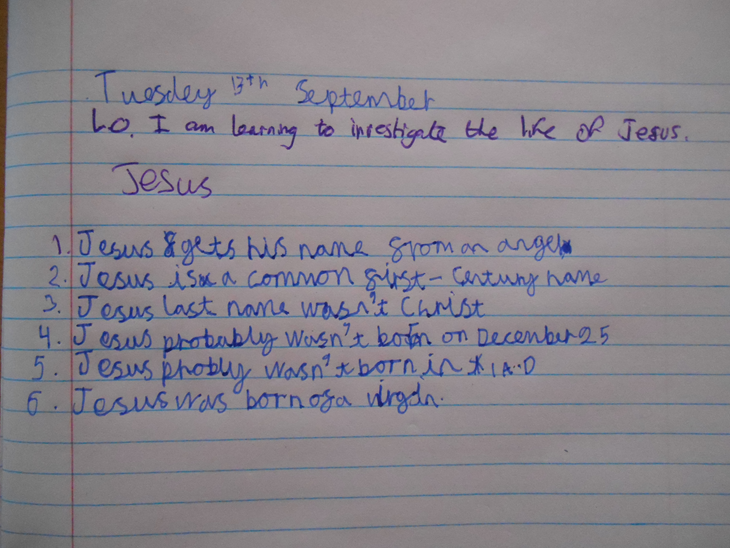 Tuesdey 13th September
L.O. I am learning to investigate the life of Jesus.
Jesus
1. Jesus gets his name from an angel
2. Jesus is a common first-century name
3. Jesus last name wasn't Christ
4. Jesus probably wasn't born on December 25
5. Jesus phobly wasn't born in 1 A.D
6. Jesus was born of a virgin.